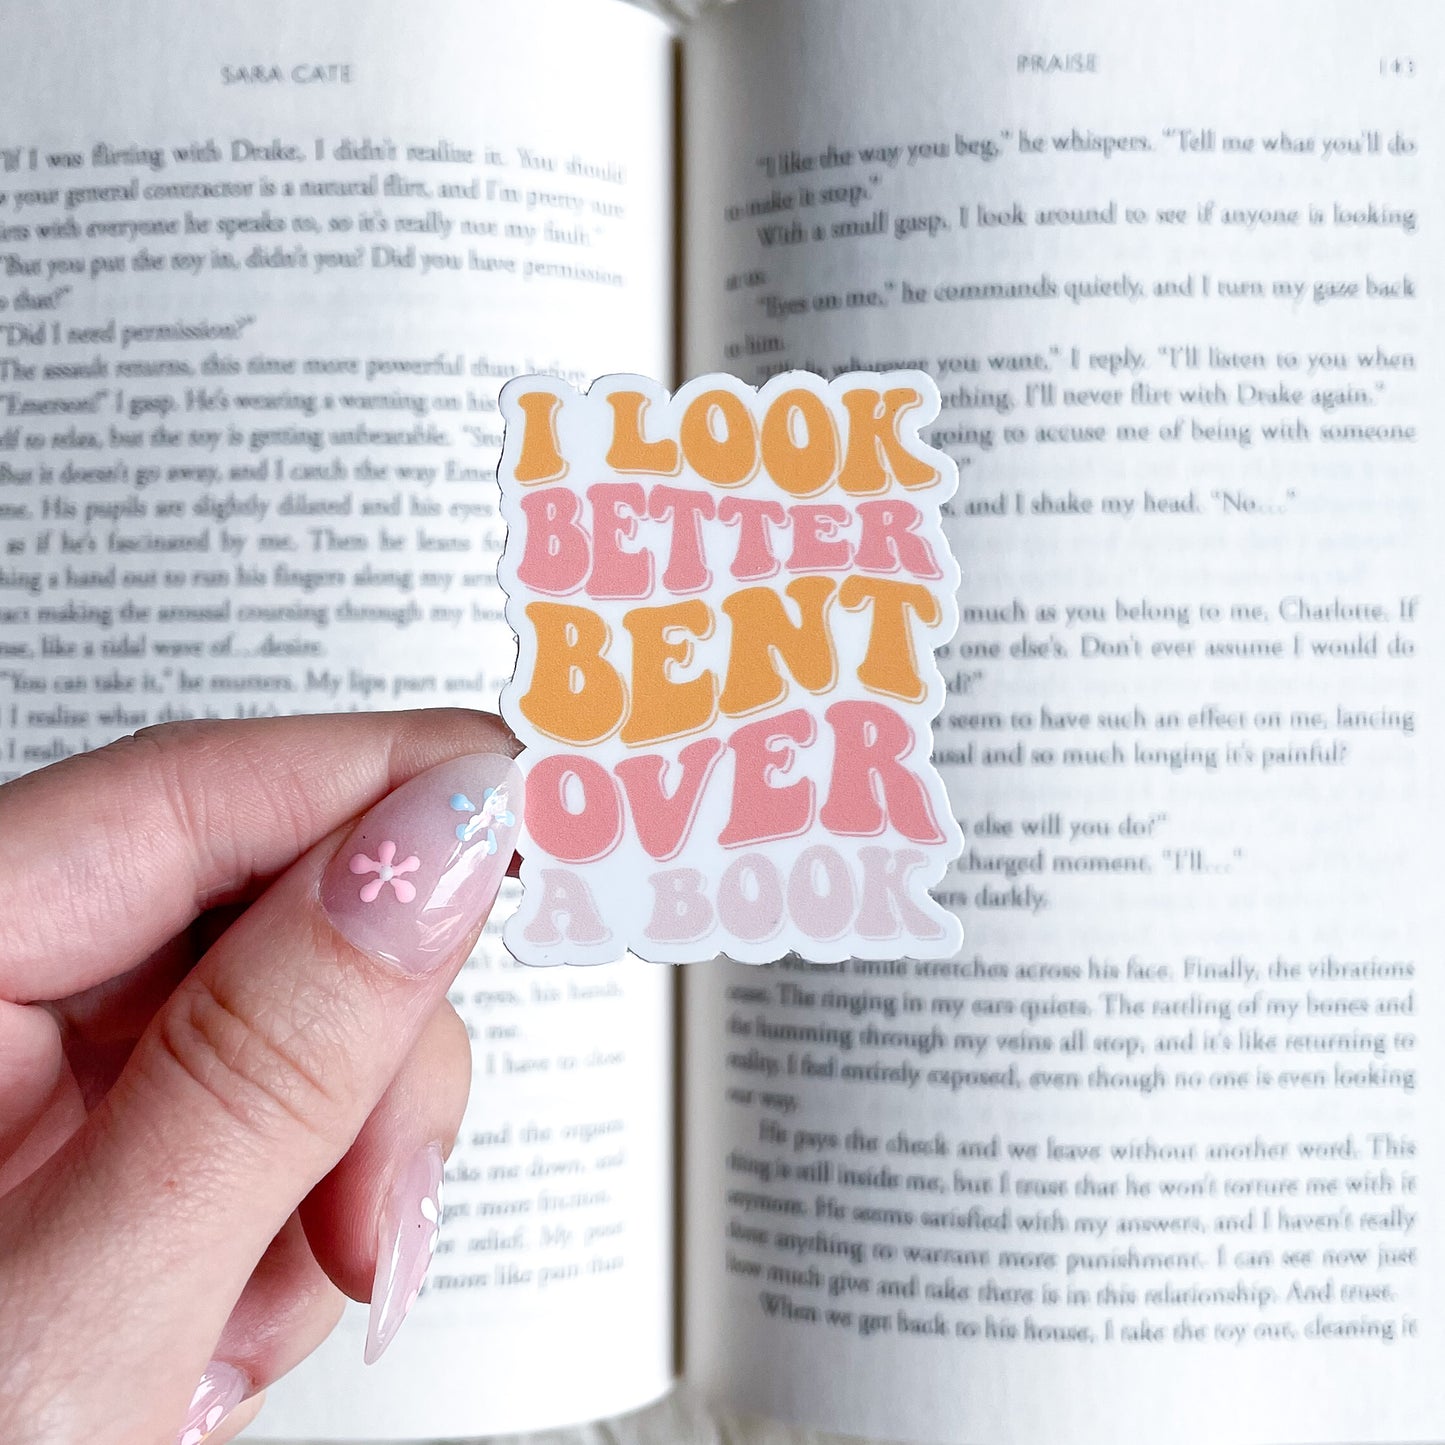 SARA CATE
"If I was flirting with Drake, I didn't realize it. You should
your general contractor is a natural flirt, and I'm pretty sure
with everyone he speaks to, so it's really not my fault."
"But you put the toy in, didn't you? Did you have permission
that?"
"Did I need permission?"
The assault returns, this time more powerful than before
"Emerson!" I gasp. He's wearing a warning on his
to relax, but the toy is getting unbearable.
But it doesn't go away, and I catch the way
me. His pupils are slightly dilated and his eyes
as if he's fascinated by me. Then he leans
a hand out to run his fingers along my
making the arousal coursing through my
like a tidal wave of…desire.
"You can take it," he mutters. My lips part and
I realize what this is.
I really
eyes, his hands,
me.
I have to close
and the orgasm
me down, and
more friction.
relief. My
more like pain than
PRAISE
143
"I like the way you beg," he whispers. "Tell me what you'll do
to make it stop."
With a small gasp, I look around to see if anyone is looking
at us.
"Eyes on me," he commands quietly, and I turn my gaze back
to him.
whatever you want," I reply. "I'll listen to you when
I'll never flirt with Drake again."
going to accuse me of being with someone
and I shake my head. "No…"
much as you belong to me, Charlotte. If
one else's. Don't ever assume I would do
seem to have such an effect on me, lancing
and so much longing it's painful?
else will you do?"
charged moment, "I'll…"
darkly.
smile stretches across his face. Finally, the vibrations
cease. The ringing in my ears quiets. The rattling of my bones and
the humming through my veins all stop, and it's like returning to
reality. I feel entirely exposed, even though no one is even looking
our way.
He pays the check and we leave without another word. This
thing is still inside me, but I trust that he won't torture me with it
anymore. He seems satisfied with my answers, and I haven't really
done anything to warrant more punishment. I can see now just
how much give and take there is in this relationship. And trust.
When we get back to his house, I take the toy out, cleaning it
I LOOK
BETTER
BENT
OVER
A BOOK